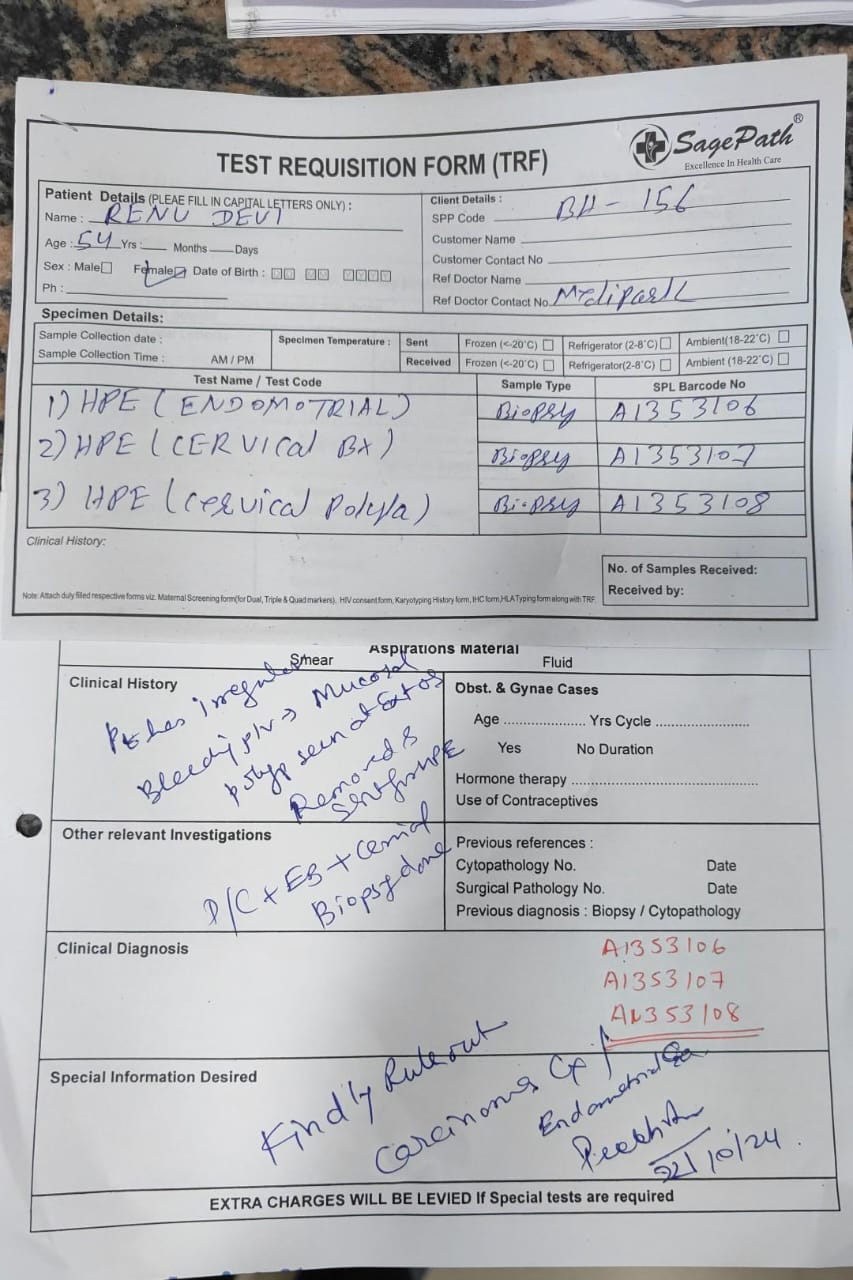 SagePath®
Excellence In Health Care
TEST REQUISITION FORM (TRF)
Patient Details (PLEAE FILL IN CAPITAL LETTERS ONLY) :
Name : RENU DEVI
Age : 54 Yrs : Months Days
Sex : Male Female Date of Birth : DD MM YYYY
Ph :
Client Details :
SPP Code BH - 156
Customer Name
Customer Contact No
Ref Doctor Name
Ref Doctor Contact No.
Specimen Details:
Sample Collection date :
Sample Collection Time : AM / PM
Specimen Temperature :
Sent Frozen (<-20°C) Refrigerator (2-8°C) Ambient(18-22°C)
Received Frozen (<-20°C) Refrigerator(2-8°C) Ambient (18-22°C)
Test Name / Test Code Sample Type SPL Barcode No
1) HPE (ENDOMOTRIAL) Biopsy A1353106
2) HPE (CERVICal BX) Biopsy A1353107
3) HPE (Cervical Polyp) Biopsy A1353108
Clinical History:
No. of Samples Received:
Received by:
Note: Attach duly filled respective forms viz. Maternal Screening form(for Dual, Triple & Quad markers), HIV consent form, Karyotyping History form, IHC form,HLA Typing form along with TRF.
Aspirations Material
Smear Fluid
Clinical History
Pt has irregular
Bleeding p/v → Mucosal
polyp seen at Ext os
Removed &
Sent for HPE
Obst. & Gynae Cases
Age .................... Yrs Cycle .......................
Yes No Duration
Hormone therapy ..............................................
Use of Contraceptives
Other relevant Investigations
D/C + EB + Cervical
Biopsy done
Previous references :
Cytopathology No. Date
Surgical Pathology No. Date
Previous diagnosis : Biopsy / Cytopathology
Clinical Diagnosis
A1353106
A1353107
A1353108
Special Information Desired
Kindly Rule out
Carcinoma Cx /
22/10/24.
EXTRA CHARGES WILL BE LEVIED If Special tests are required